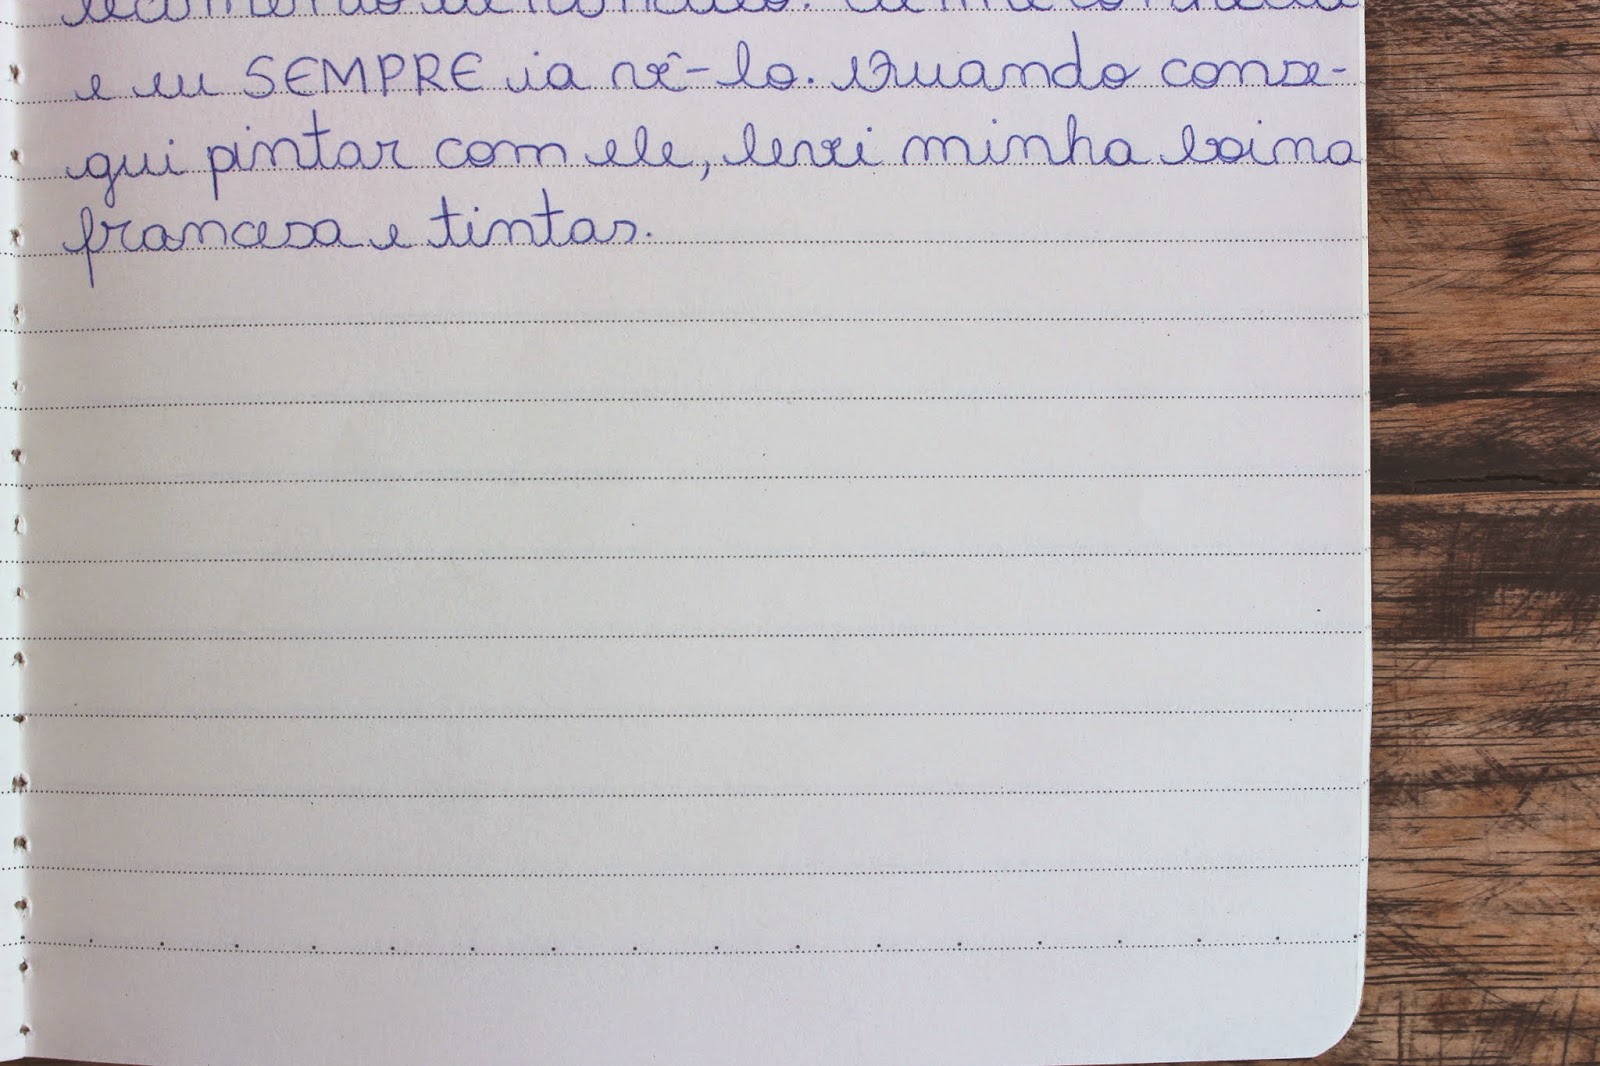 e eu SEMPRE ia vê-lo. Quando conse-
gui pintar com ele, levei minha boina
francesa e tintas.